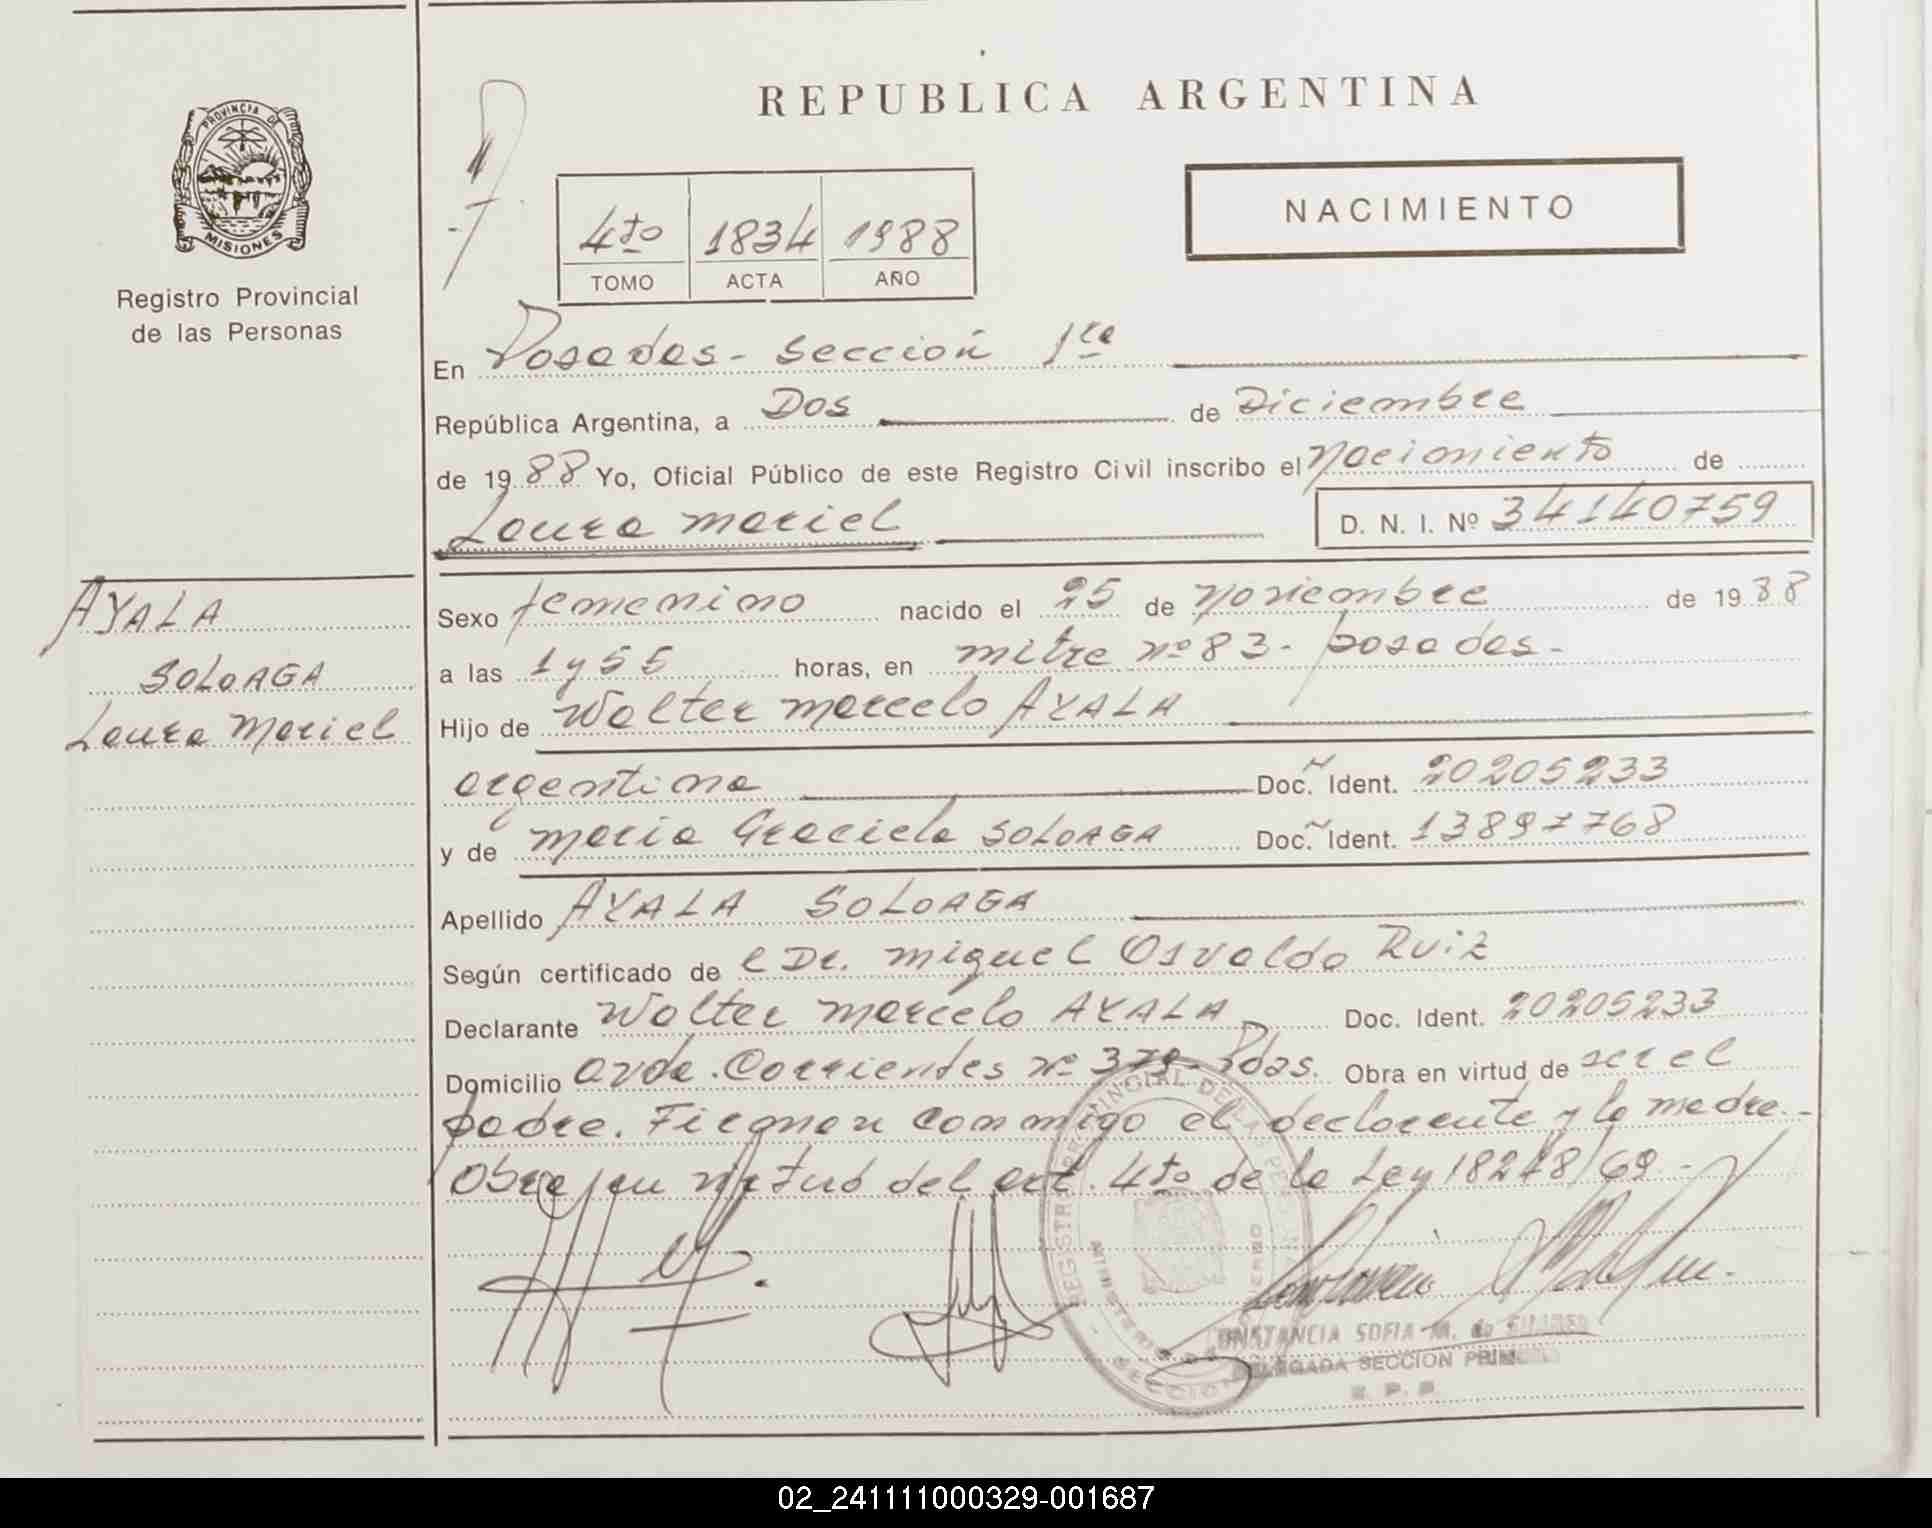 REPUBLICA ARGENTINA
PROVINCIA DE
MISIONES
Registro Provincial
de las Personas
NACIMIENTO
4to 1834 1988
TOMO ACTA AÑO
En Posadas - Sección 1ra
República Argentina, a Dos de Diciembre
de 1988 Yo, Oficial Público de este Registro Civil inscribo el Nacimiento de
Laura Mariel D. N. I. Nº 34140759
AYALA
SOLOAGA
Laura Mariel
Sexo femenino nacido el 25 de Noviembre de 1988
a las 1 y 55 horas, en Mitre nº 83 - Posadas -
Hijo de Walter Marcelo AYALA
argentina Doc. Ident. 20205233
y de Maria Graciela SOLOAGA Doc. Ident. 13897768
Apellido AYALA SOLOAGA
Según certificado de el Dr. Miguel Osvaldo Ruiz
Declarante Walter Marcelo AYALA Doc. Ident. 20205233
Domicilio Avda. Corrientes nº 379 - Pdas. Obra en virtud de ser el
padre. Firman conmigo el declarante y la madre. -
Obra en virtud del art. 4to de la Ley 18248/69 -
SOFIA M. de
DELEGADA SECCION
R. P. P.
02_241111000329-001687